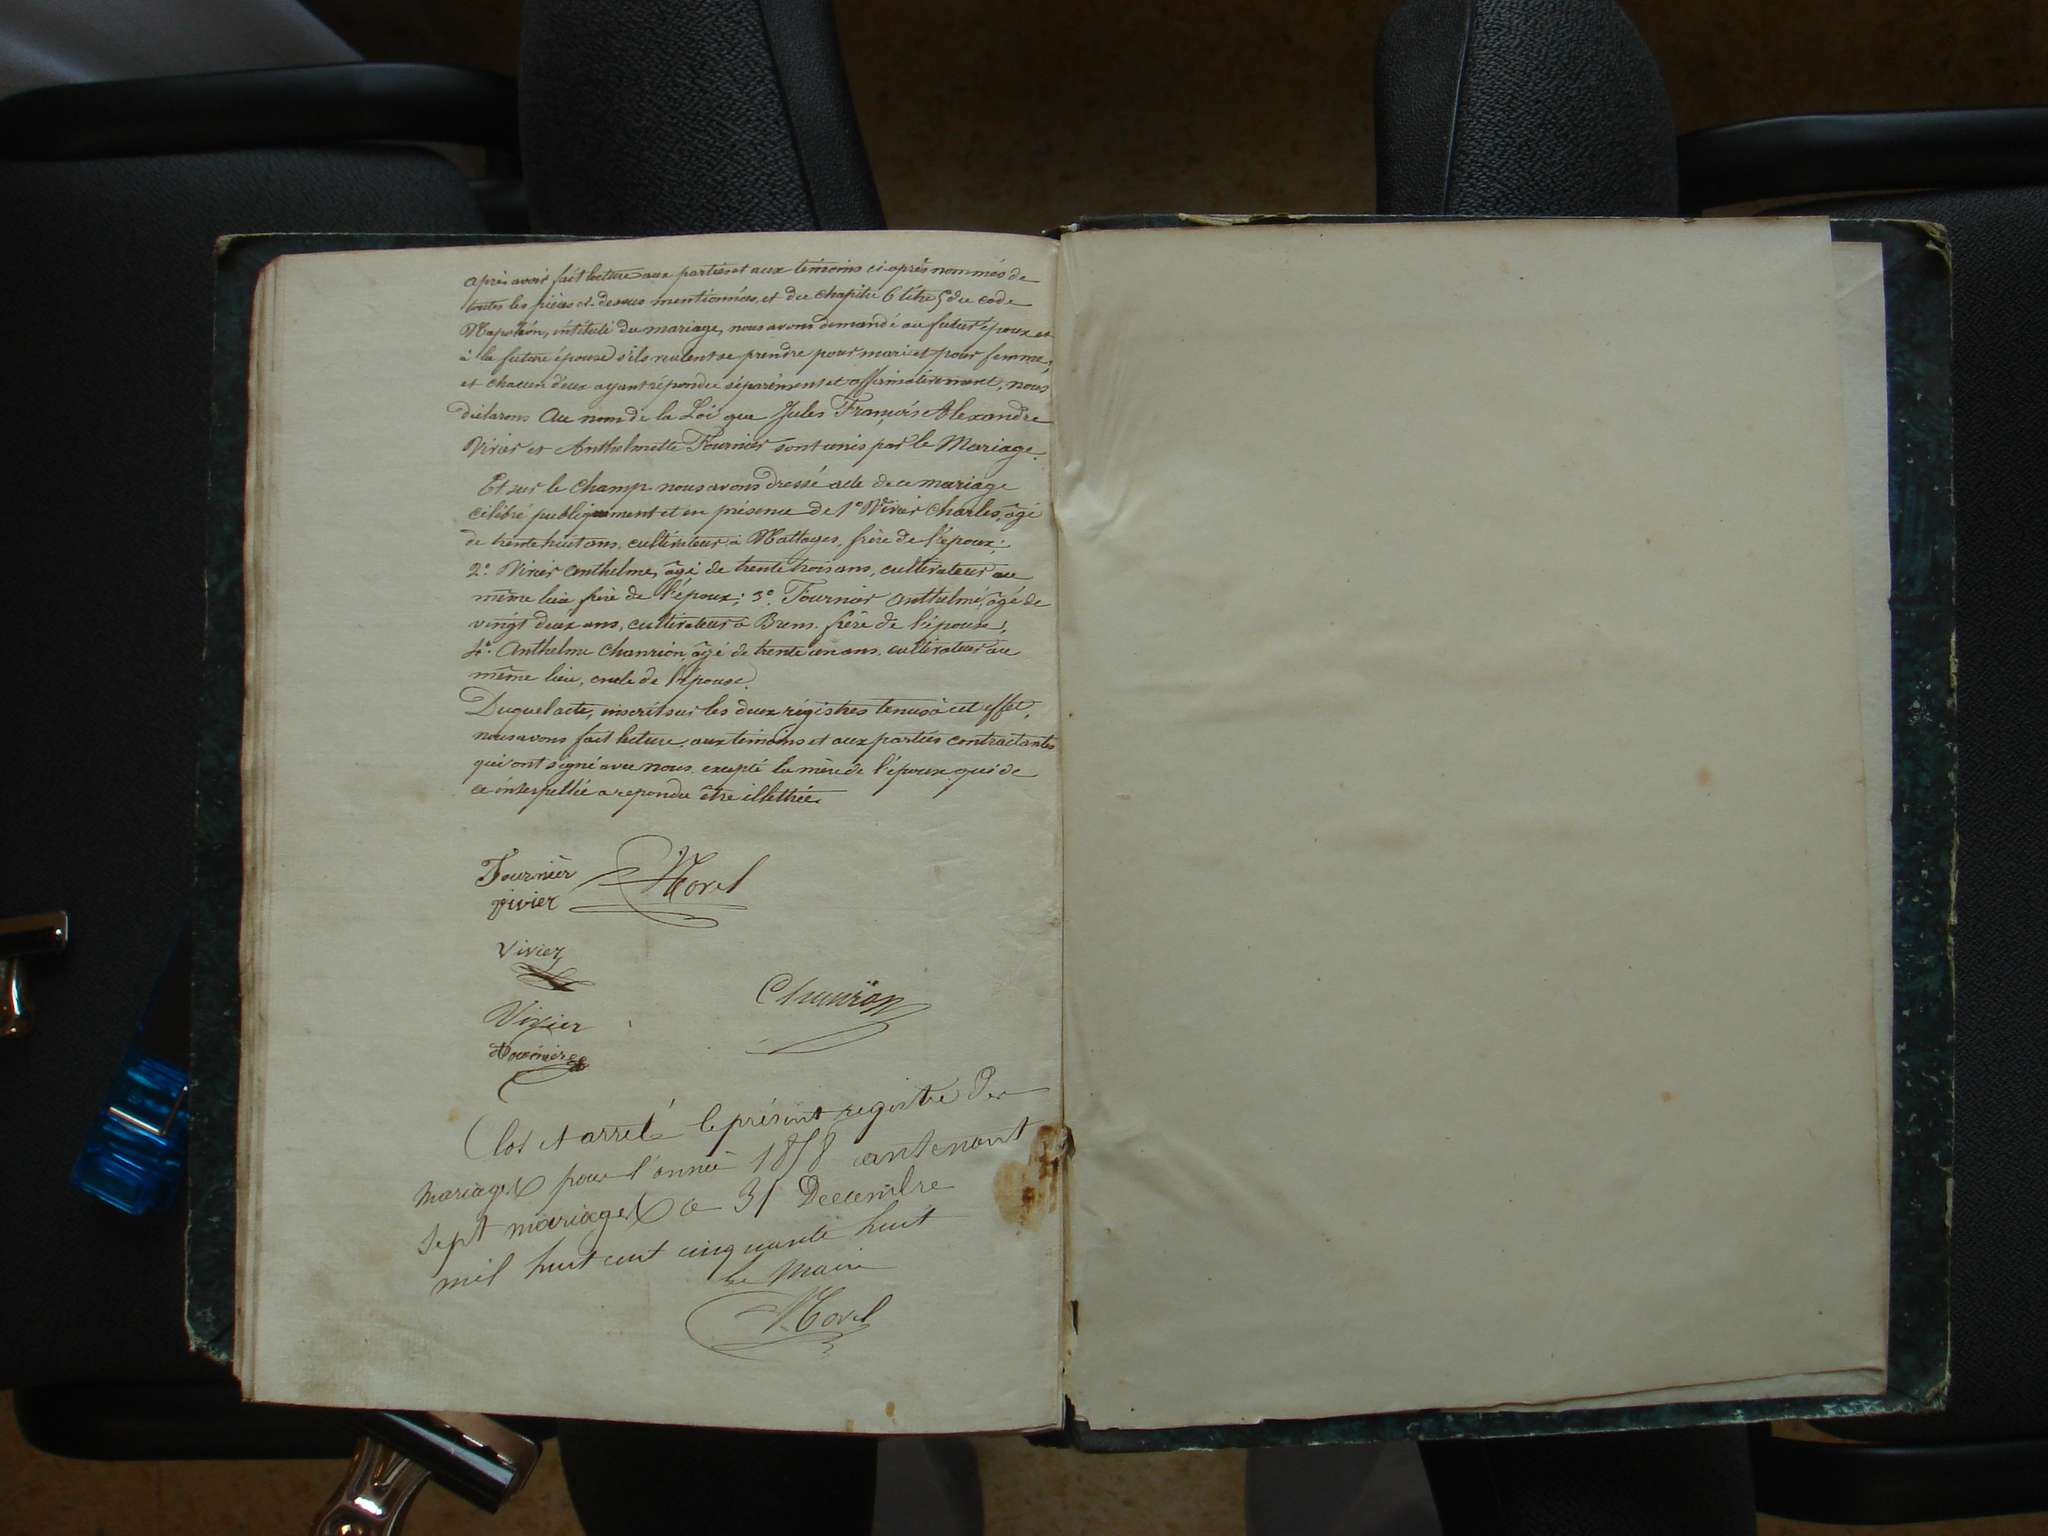 après avoir fait lecture aux parties et aux témoins ci-après nommés de
toutes les pièces ci-dessus mentionnées, et du chapitre 6 titre 5 du code
Napoléon, intitulé du mariage, nous avons demandé au futur époux et
à la future épouse s'ils veulent se prendre pour mari et pour femme;
et chacun d'eux ayant répondu séparément et affirmativement, nous
déclarons au nom de la Loi que Jules François Alexandre
Vivier et Anthelmette Fournier sont unis par le Mariage.
Et sur le champ nous avons dressé acte de ce mariage
célébré publiquement et en présence de 1° Vivier Charles, âgé
de trente huit ans, cultivateur à Nattages, frère de l'époux;
2° Vivier Anthelme, âgé de trente trois ans, cultivateur au
même lieu frère de l'époux; 3° Fournier Anthelme, âgé de
vingt deux ans, cultivateur à Brens, frère de l'épouse;
4° Anthelme Chanrion, âgé de trente un ans, cultivateur au
même lieu, oncle de l'épouse.
Duquel acte, inscrit sur les deux régistres tenus à cet effet,
nous avons fait lecture, aux témoins et aux parties contractantes
qui ont signé avec nous, excepté la mère de l'époux qui de
ce interpellée a repondu être illettrée.
Fournier Morel
vivier
Vivier
Chanrion
Vivier
Fournier
Clos et arrêté le présent registre des
mariages pour l'année 1858 contenant
sept mariages ce 31 Decembre
mil huit cent cinquante huit
Le Maire
Morel